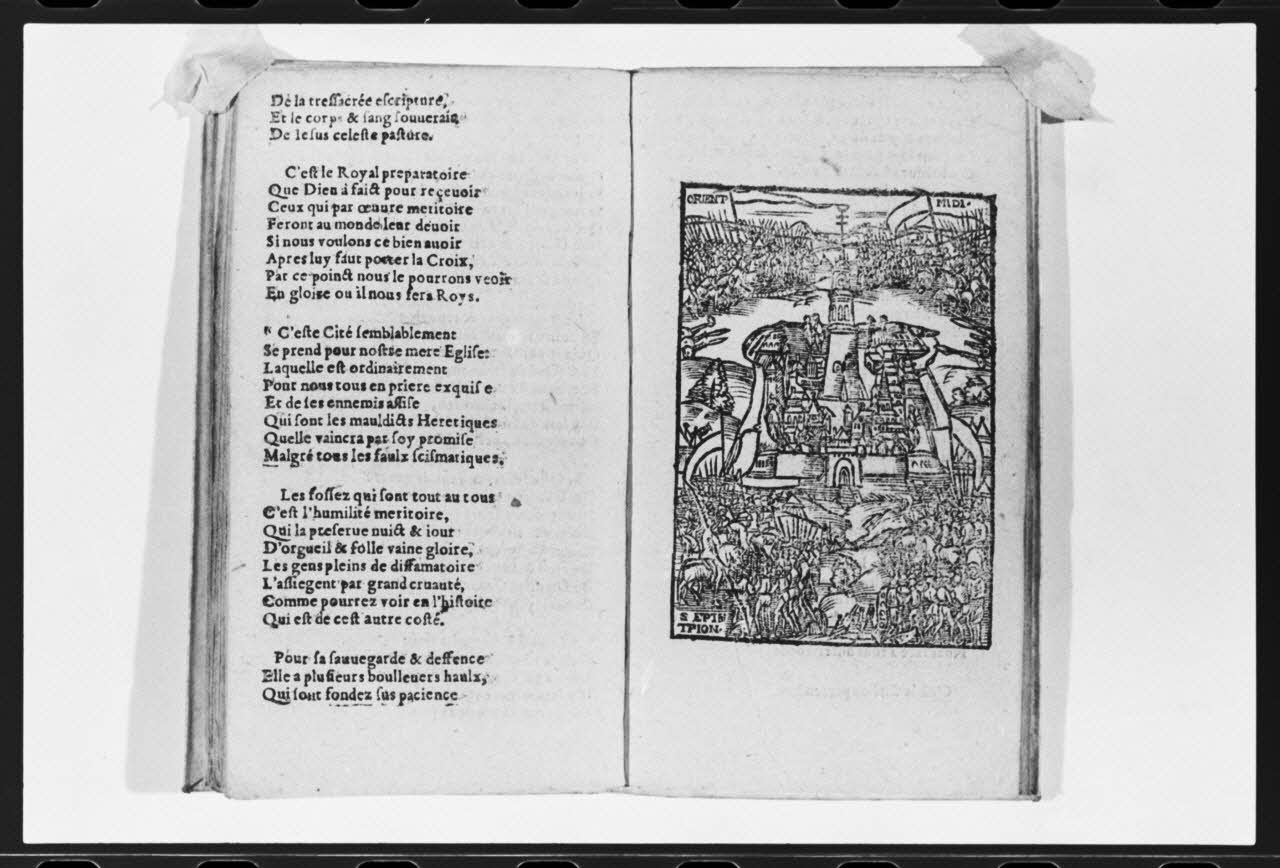 De la tressacrée escripture,
Et le corps & sang souuerain
De Iesus celeste pasture.
C'est le Royal preparatoire
Que Dieu à faict pour reçeuoir
Ceux qui par œuure meritoire
Feront au monde leur deuoir
Si nous voulons ce bien auoir
Apres luy faut porter la Croix,
Par ce poinct nous le pourrons veoir
En gloire ou il nous fera Roys.
C'este Cité semblablement
Se prend pour nostre mere Eglise:
Laquelle est ordinairement
Pour nous tous en priere exquise
Et de ses ennemis assise
Qui sont les mauldicts Heretiques
Quelle vaincra par foy promise
Malgré tous les faulx scismatiques.
Les fossez qui sont tout au tous
C'est l'humilité meritoire,
Qui la preserue nuict & iour
D'orgueil & folle vaine gloire,
Les gens pleins de diffamatoire
L'assiegent par grand cruauté,
Comme pourrez voir en l'histoire
Qui est de cest autre costé.
Pour sa sauuegarde & deffence
Elle a plusieurs boulleuers haulx,
Qui sont fondez sus pacience
ORIENT
MIDI.
SEPTN
TRION.